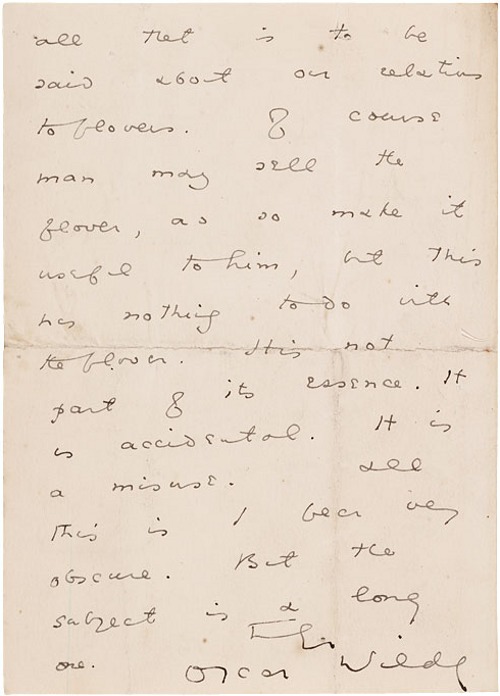 all that is to be
said about our relations
to flowers. Of course
man may sell the
flower, and so make it
useful to him, but this
has nothing to do with
the flower. It is not
part of its essence. It
is accidental. It is
a misuse. All
this is I fear very
obscure. But the
subject is a long
one.
Oscar Wilde